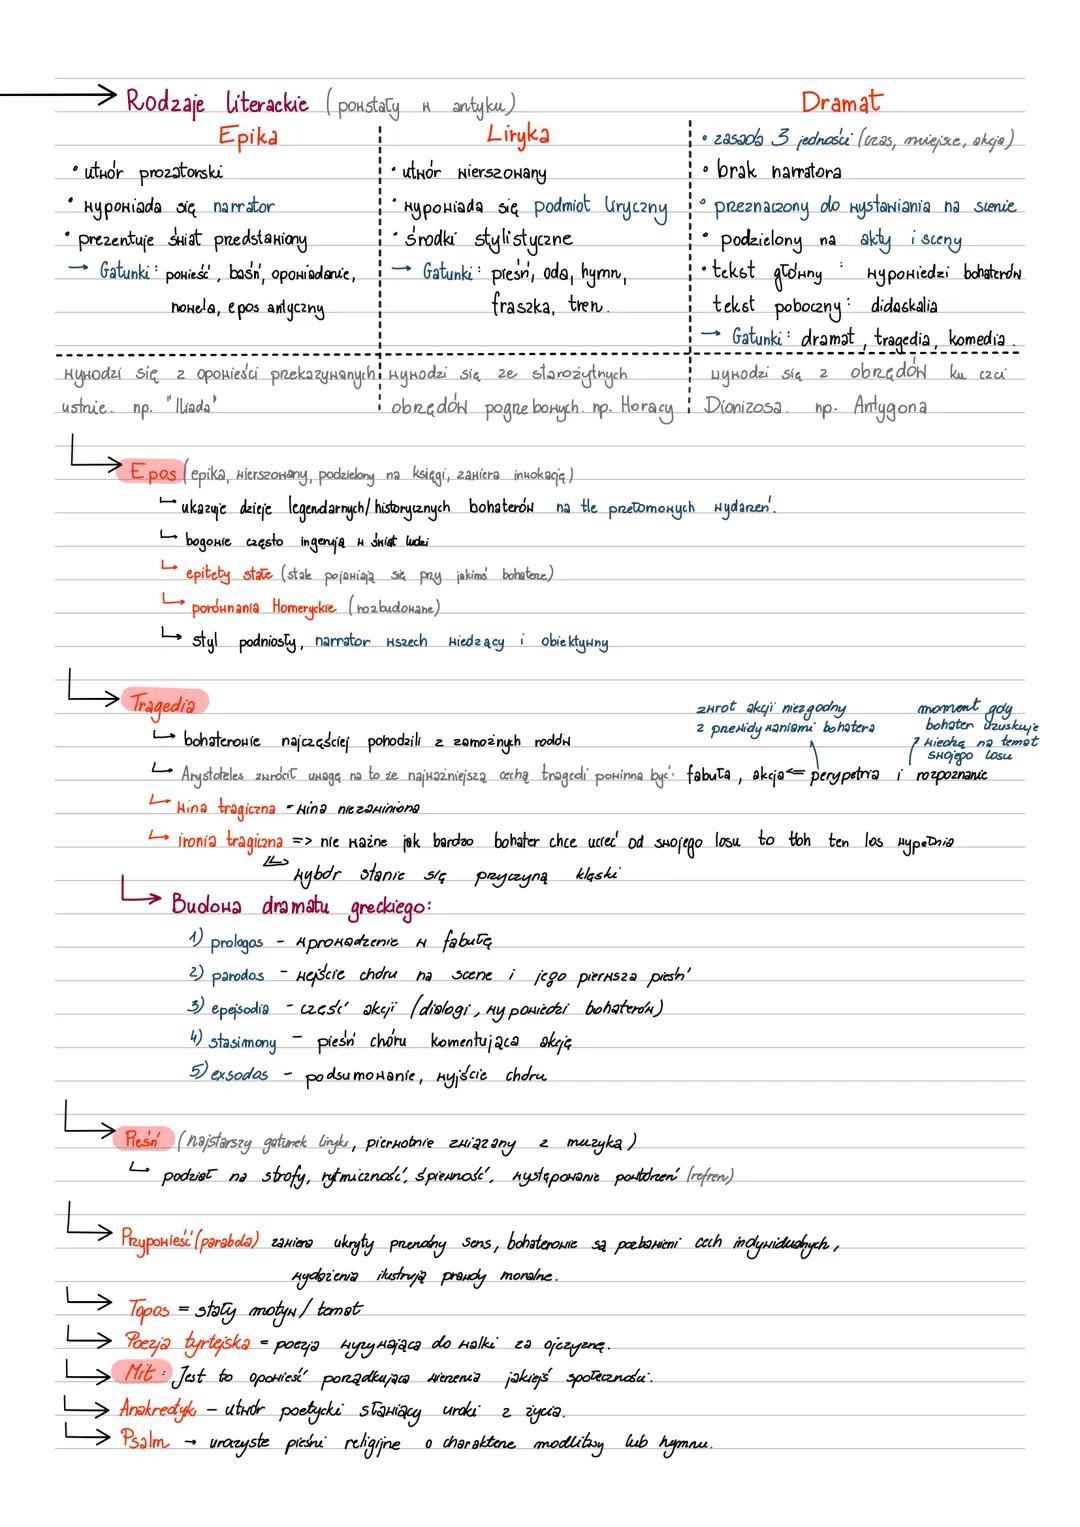 Rodzaje literackie (powstały w antyku)
Epika
• utwór prozatorski
• wypowiada się narrator
• prezentuje świat predstawiony
→ Gatunki: powieść, baśń, opowiadanie,
nowela, epos antyczny
wywodzi się z opowieści przekazywanych
ustnie. np. "Iliada"
Liryka
• utwór wierszowany
• wypowiada się podmiot liryczny
• środki stylistyczne
→ Gatunki: pieśń, oda, hymn,
fraszka, tren.
wywodzi się ze starożytnych
obrzędów pogrzebowych. np. Horacy
Dramat
• zasada 3 jedności (czas, miejsce, akcja)
• brak narratora
• przeznaczony do wystawiania na scenie
• podzielony na akty i sceny
• tekst główny: wypowiedzi bohaterów
tekst poboczny: didaskalia
→ Gatunki: dramat, tragedia, komedia.
wywodzi się z obrzędów ku czci
Dionizosa. np. Antygona
Epos (epika, wierszowany, podzielony na księgi, zawiera inwokację)
ukazuje dzieje legendarnych/historycznych bohaterów na tle przełomowych wydarzeń.
bogowie często ingerują w świat ludzi
epitety stałe (stale pojawiają się przy jakimś bohaterze)
porównania Homeryckie (rozbudowane)
styl podniosły, narrator wszech wiedzący i obiektywny
Tragedia
zwrot akcji niezgodny
z przewidywaniami bohatera
moment gdy
bohater uzuskuje
wiedzę na temat
swojego losu
bohaterowie najczęściej pohodzili z zamożnych rodów
Arystoteles zwrócił uwagę na to że najważniejszą cechą tragedi powinna być: fabuła, akcja <= perypetria i rozpoznanie
wina tragiczna - wina niezawiniona
ironia tragiczna => nie ważne jak bardzo bohater chce uciec od swojego losu to tbh ten los wypełnia
wybór stanie się przyczyną klęski
Budowa dramatu greckiego:
1) prologos - wprowadzenie w fabułę
2) parodos - wejście chóru na scene i jego pierwsza pieśń
3) epejsodia - cześć akcji (dialogi, wypowiedzi bohaterów)
4) stasimony - pieśń chóru komentująca akcję
5) exsodos - podsumowanie, wyjście chóru
Pieśń (najstarszy gatunek liryki, pierwotnie związany z muzyką)
podział na strofy, rytmiczność, śpiewność, występowanie powtórzeń (refren)
Przypowieść (parabola) zawiera ukryty przenośny sens, bohaterowie są pozbawieni cech indywidualnych,
wydarzenia ilustrują prawdy moralne.
Topos = stały motyw/temat
Poezja tyrtejska = poezja wyzywająca do walki za ojczyznę.
Mit: Jest to opowieść porządkująca wierzenia jakiejś społeczności.
Anakreotyk - utwór poetycki sławiący uroki z życia.
Psalm → uroczyste pieśni religijne o charakterze modlitwy lub hymnu.